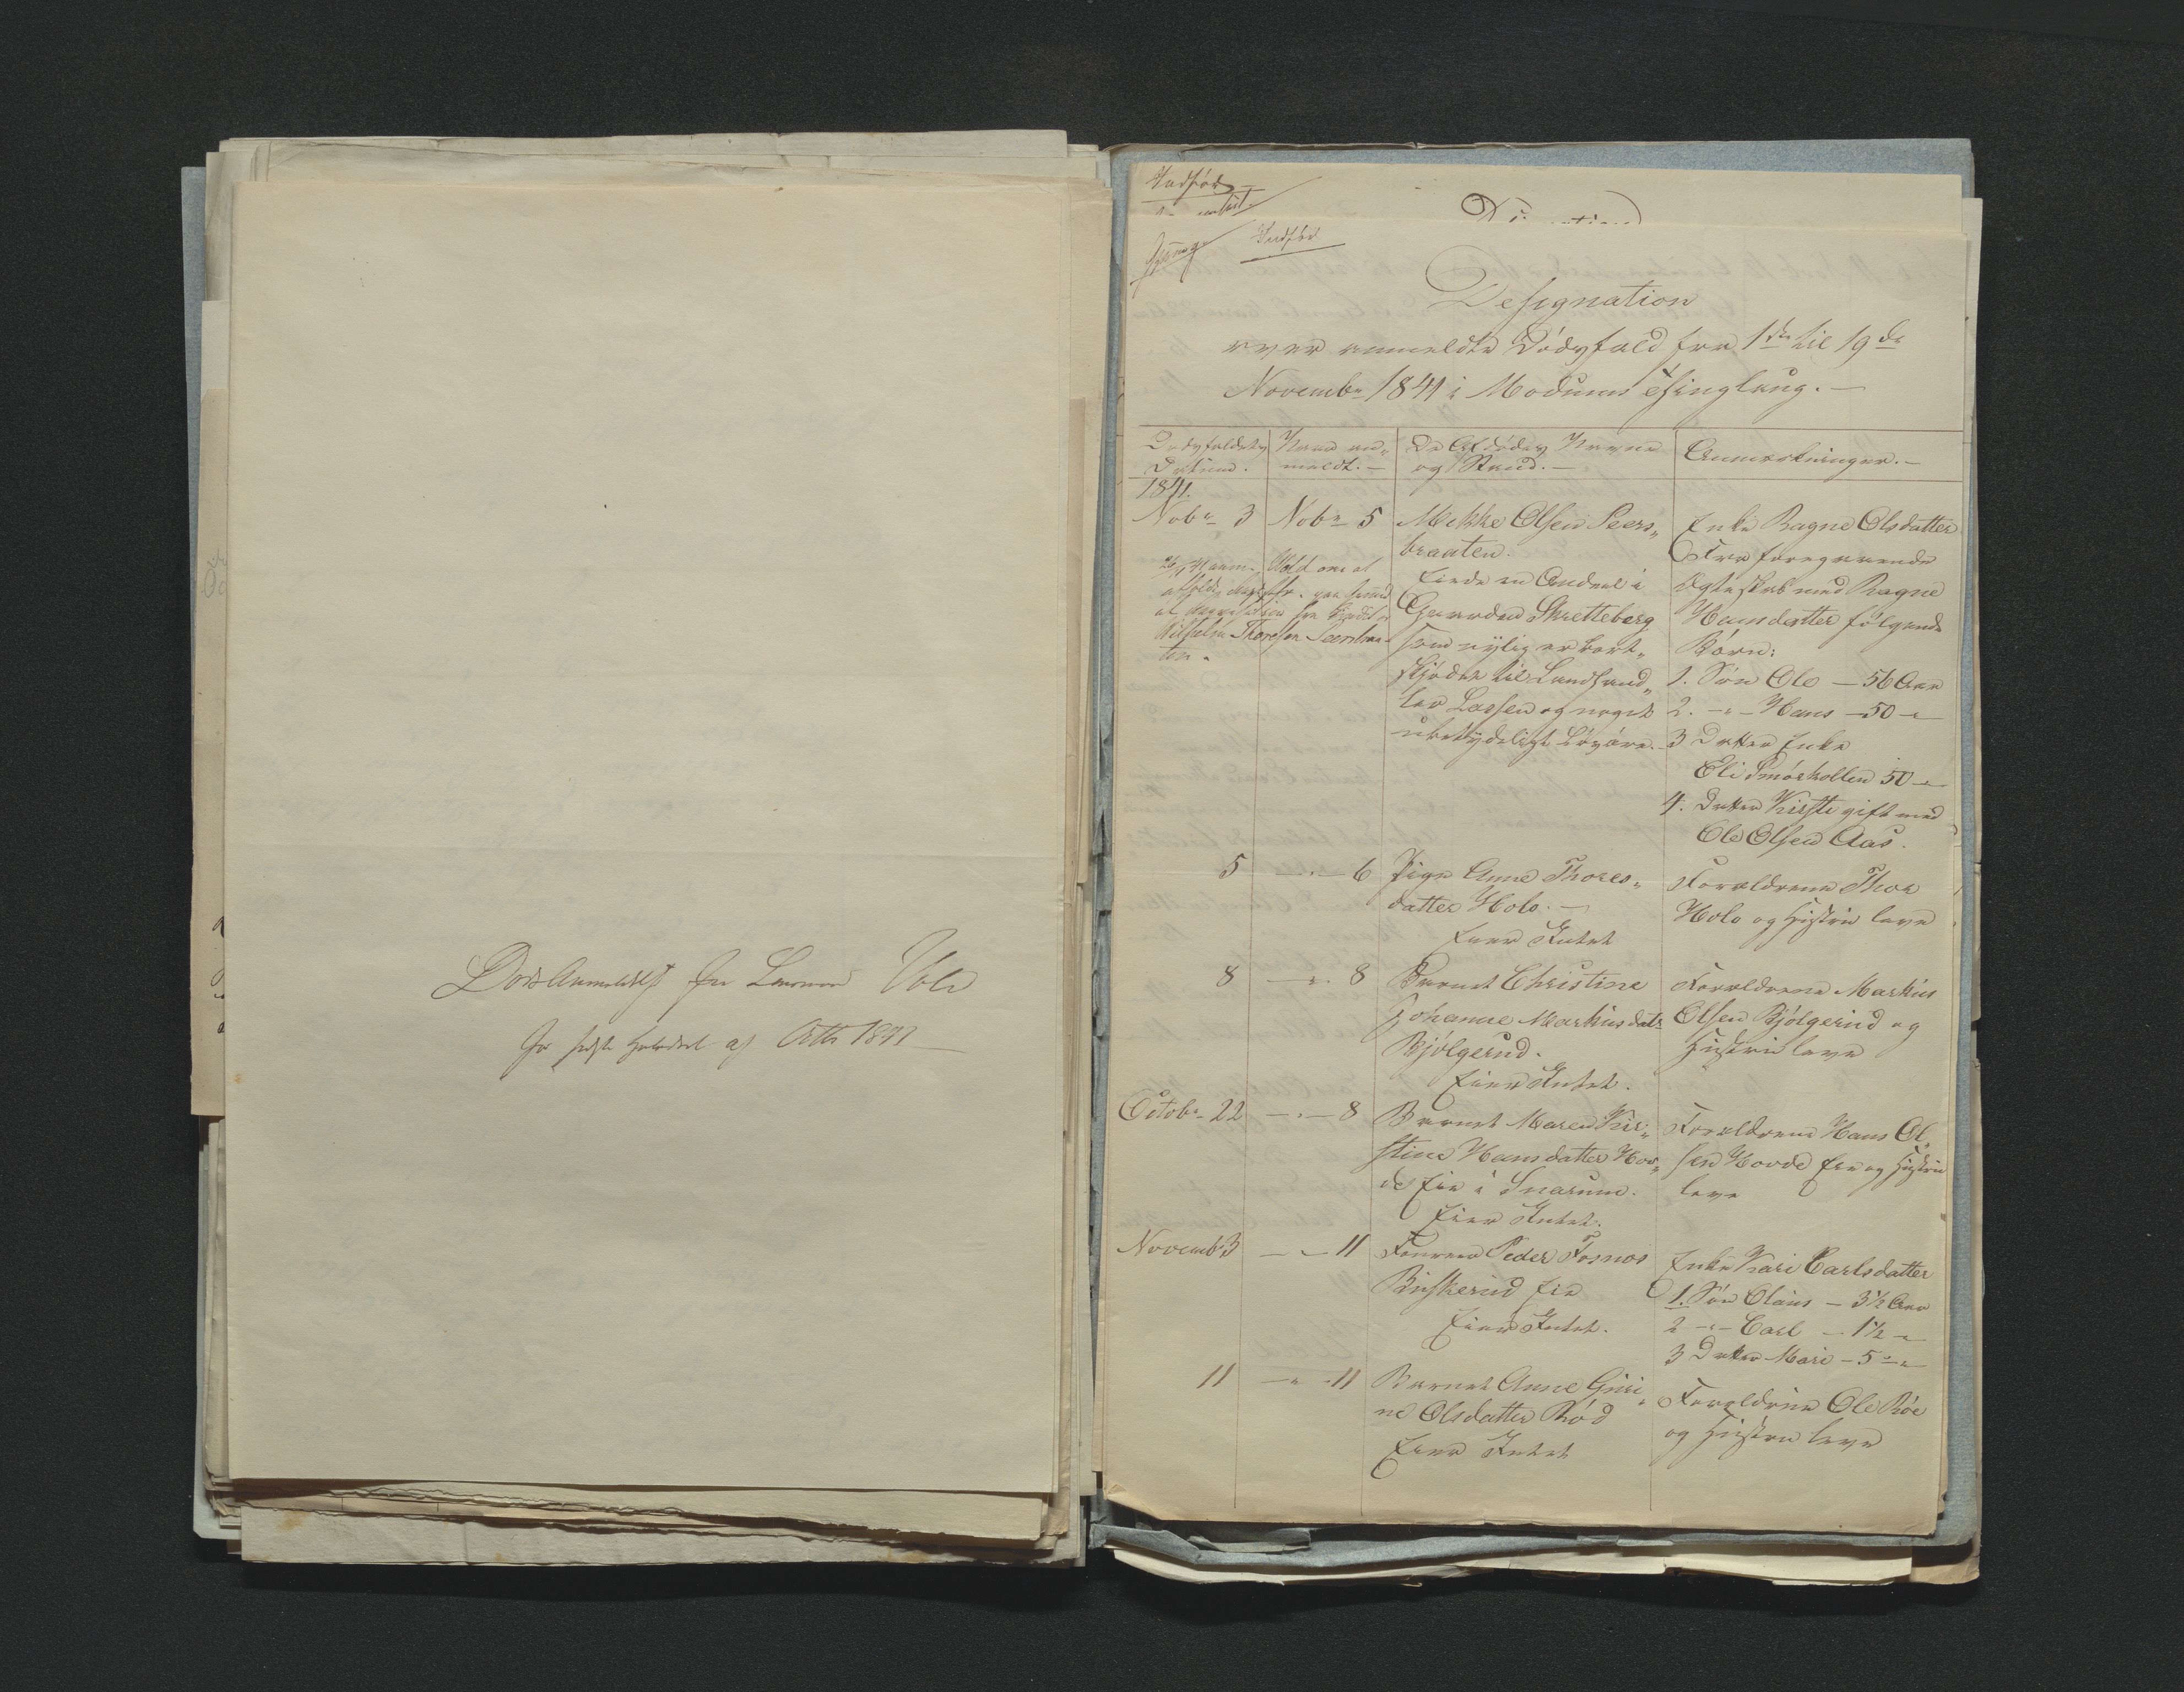 DødsAnmeldelse fra Lensmand Vold
for sidste Halvdeel af Octbr 1841
Indført
Indført
Designation
over anmeldte Dødsfald fra 1ste til 19de
Novembr 1841 i Modums Thinglaug. —
Dødsfaldets
Datum.
Naar an-
meldt. —
De Afdødes Navne
og Stand. —
Anmærkninger. —
1841.
Nobr 3 Nobr 5 Mekke Olsen Peers-
braaten.
Eiede en Andeel i
Gaarden Skretteberg
som nylig er bort-
skjødet til Landhand-
ler Lassen og noget
ubetydeligt Løsøre.
Enke Ragne Olsdatter
Fra foregaaende
Ægteskab med Ragne
Hansdatter følgende
Børn:
1. Søn Ole — 56 Aar
2. -"- Hans — 50 -"
3 Datter Enke
Eli Smørkollen 50 -"
4. Datter Kirsti gift med
Ole Olsen Aas.
Vold om at
Thoresen
5 —"— 6 Pige Anne Thores-
datter Hole. —
Eier Intet
Forældrene Thor
Hole og Hustru leve
8 —"— 8 Barnet Christine
Johanne Markusdatr
Bjølgerud.
Eier Intet.
Forældrene Markus
Olsen Bjølgerud og
Hustru leve
Octobr 22 —"— 8 Barnet Maren Kir-
stine Hansdatter Hov-
de Eie i Snarum.
Eier Intet.
Forældrene Hans Ol-
sen Hovde Eie og Hustru
leve
Novemb 3 —"— 11 Peder Fosnos
Buskerud Eie
Eier Intet.
Enke Kari Carlsdatter
1. Søn Olaus — 3½ Aar
2 -"- Carl — 1½ -"
3 Datter Mari — 5 -"
11 —"— 11 Barnet Anne Guri-
ne Olsdatter Rød
Eier Intet
Forældrene Ole Röe
og Hustru leve